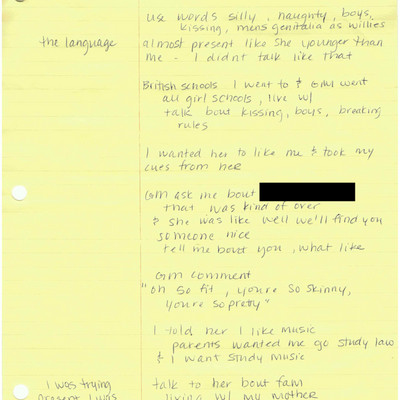 use words silly, naughty, boys,
kissing, mens genitalia as willies
the language
almost present like she younger than
me - I didnt talk like that
British schools I went to & GM went
all girl schools, live w/
talk bout kissing, boys, breaking
rules
I wanted her to like me & took my
cues from her
GM ask me bout
that was kind of over
& she was like well we'll find you
someone nice
tell me bout you, what like
GM comment
"oh so fit, youre so skinny,
youre so pretty"
I told her I like music
parents wanted me go study law
& I want study music
I was trying
talk to her bout fam
present I was
living w/ my mother